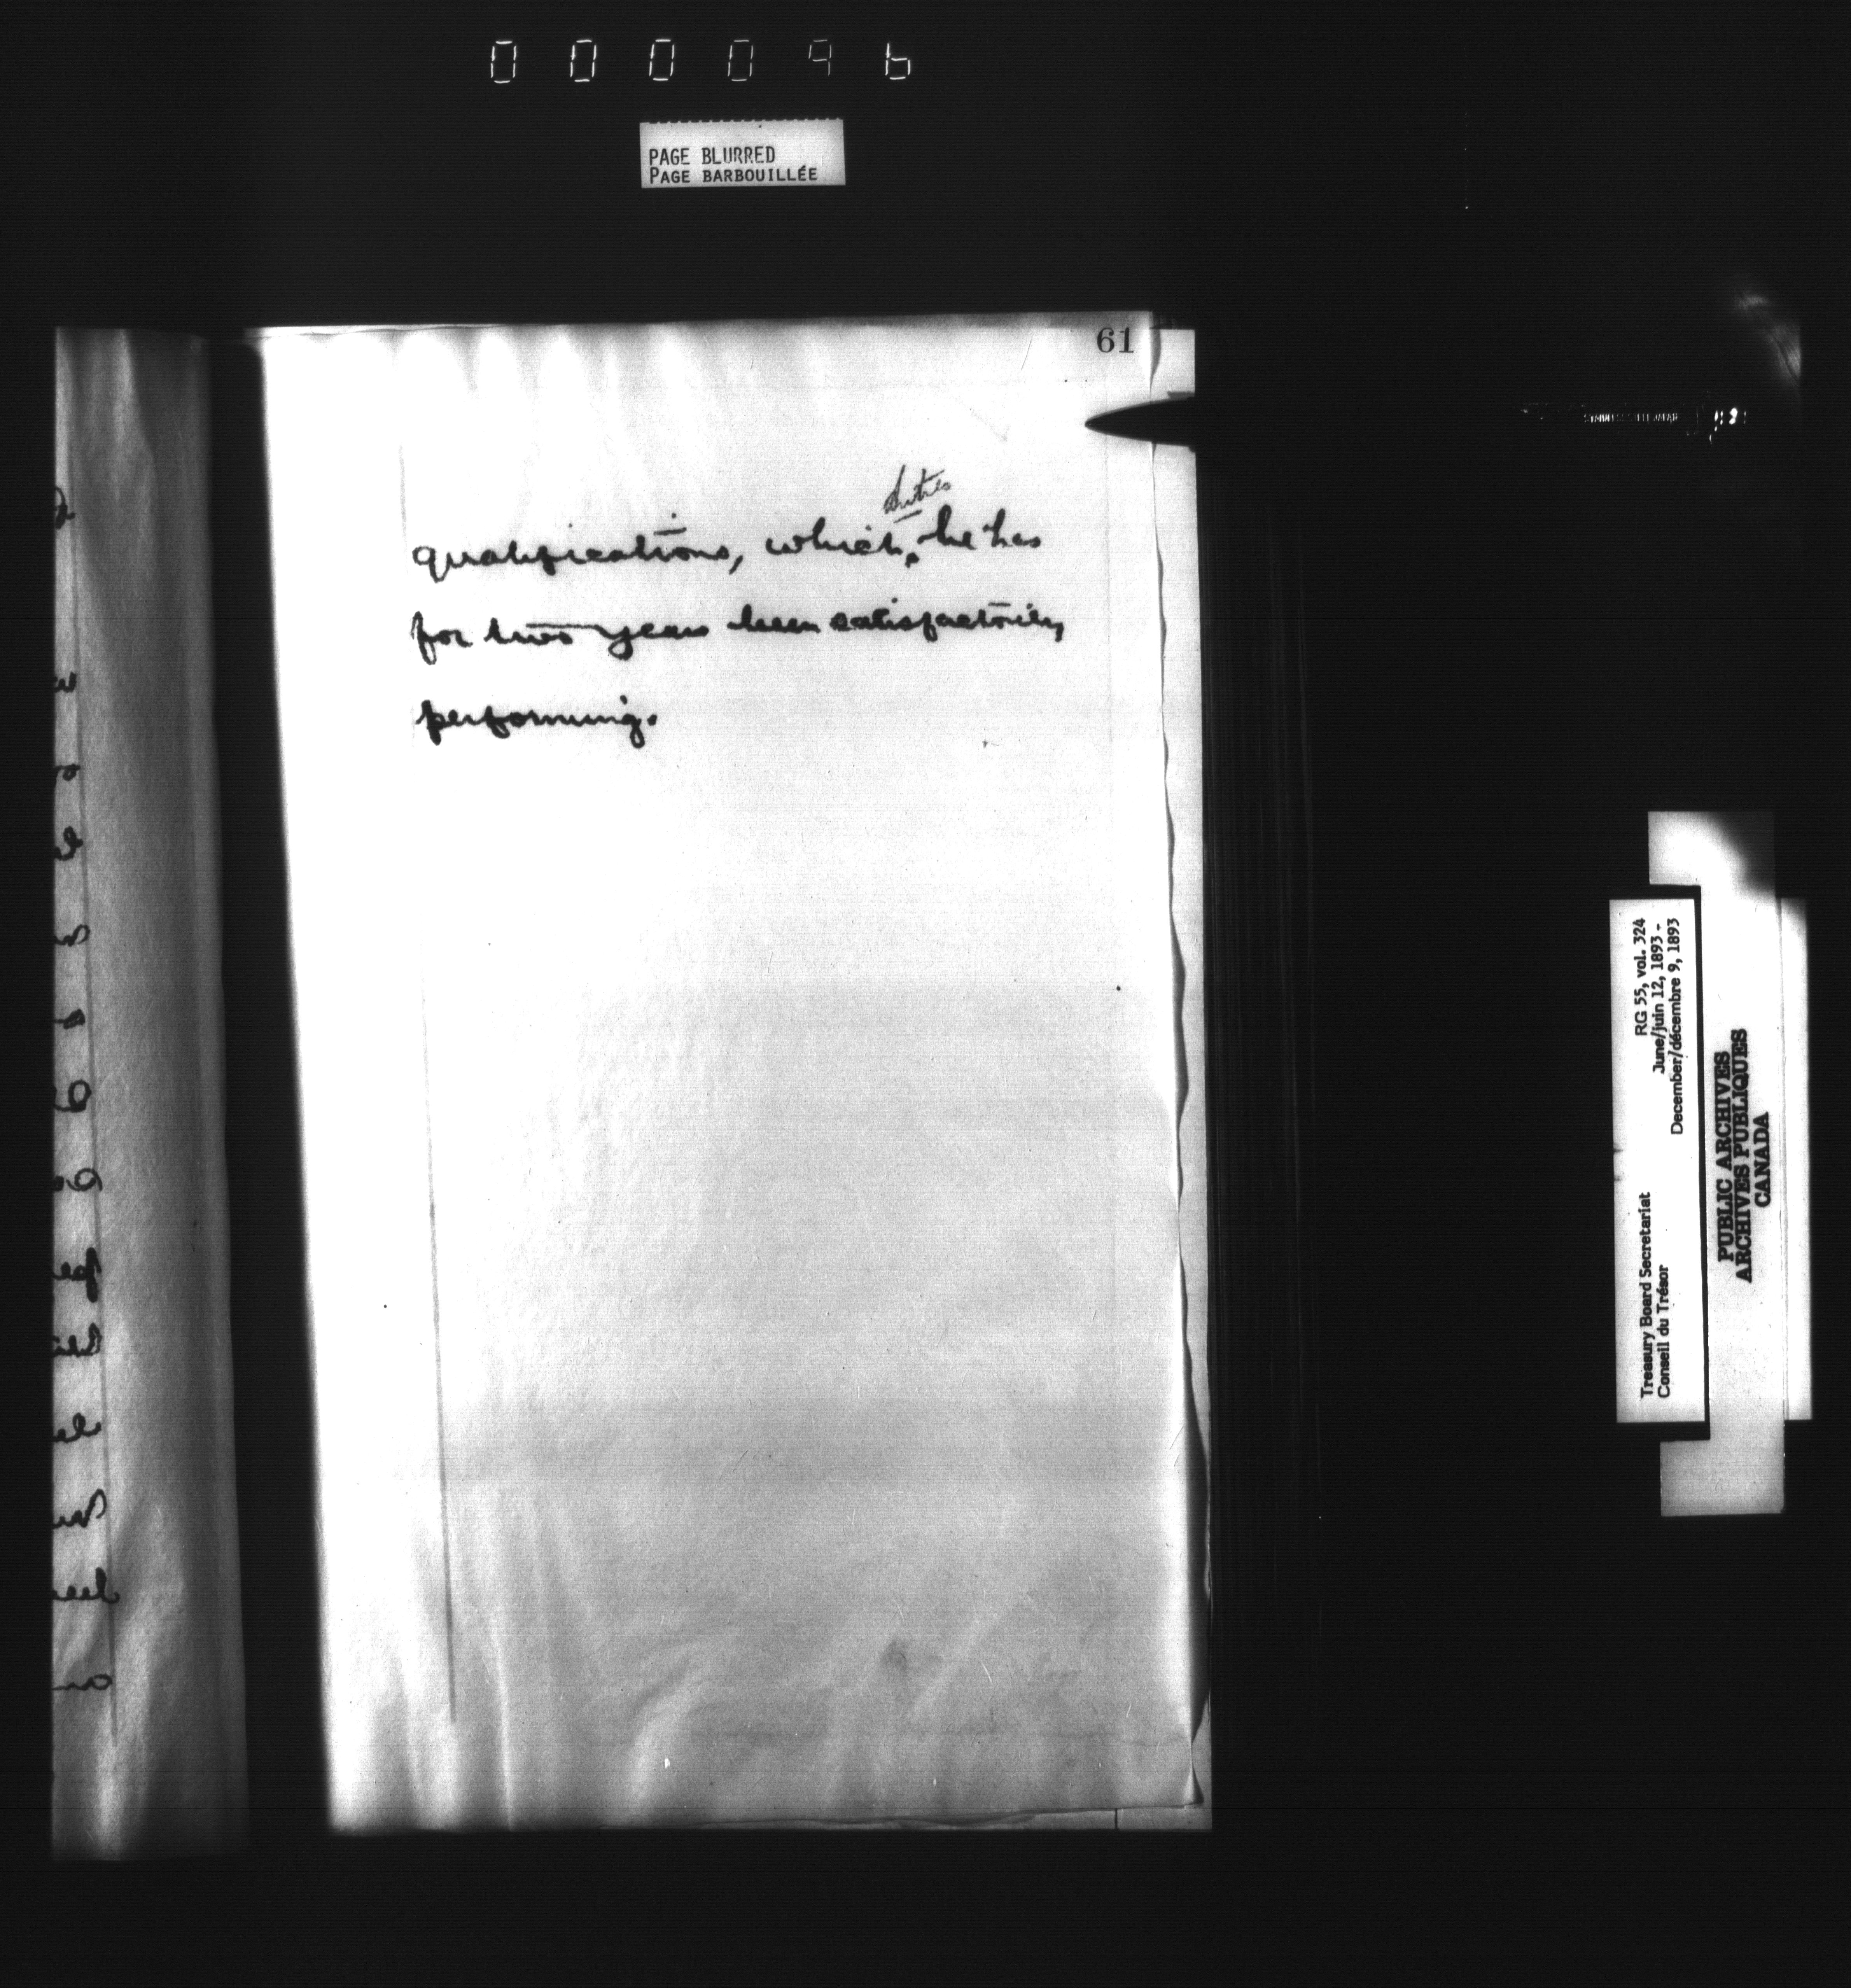 000096
PAGE BLURRED
PAGE BARBOUILLÉE
61
duties
qualifications, which he has
for two years been satisfactorily
performing.
RG 55, vol. 324
June/juin 12, 1893 -
December/décembre 9, 1893
Treasury Board Secretariat
Conseil du Trésor
PUBLIC ARCHIVES
ARCHIVES PUBLIQUES
CANADA